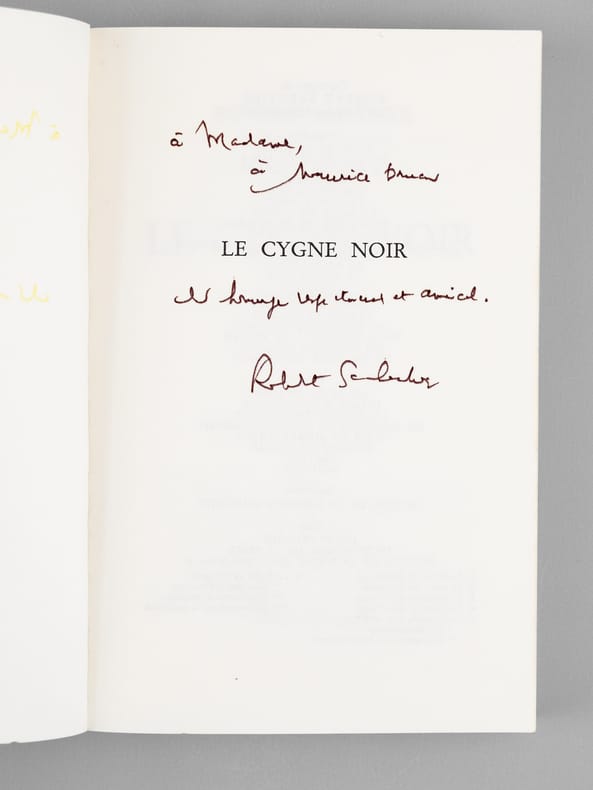 à Madame,
à Maurice Druon
LE CYGNE NOIR
hommage respectueux et amical.
Robert Sabatier